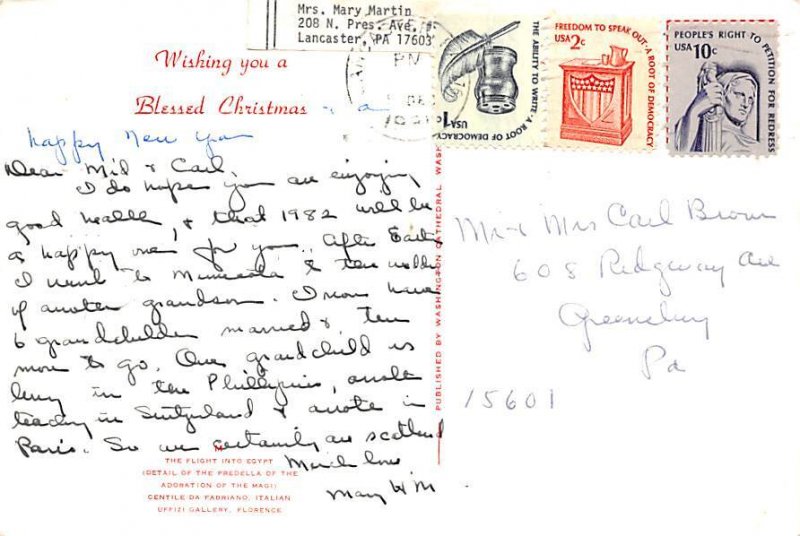 Mrs. Mary Martin
208 N. Pres. Ave.
Lancaster, PA 17603
THE ABILITY TO WRITE · A ROOT OF DEMOCRACY
USA 1
FREEDOM TO SPEAK OUT · A ROOT OF DEMOCRACY
USA 2c
PEOPLE'S RIGHT TO PETITION FOR REDRESS
USA 10c
PM
Wishing you a
Blessed Christmas & a
happy New Year
Dear Mid & Carl,
I do hope you are enjoying
good health, & that 1982 will be
a happy one for you. After Easter
I went to Minnesota & the wedding
of another grandson. I now have
6 grandchildren married & ten
more to go. One grandchild is
living in the Phillipines, another
teaching in Switzerland & another in
Paris. So we certainly are scattered
Much love
Mary W M
THE FLIGHT INTO EGYPT
(DETAIL OF THE PREDELLA OF THE
ADORATION OF THE MAGI)
GENTILE DA FABRIANO, ITALIAN
UFFIZI GALLERY, FLORENCE
PUBLISHED BY WASHINGTON CATHEDRAL WASH
Mr & Mrs Carl Brown
608 Ridgeway Ave
Greensburg
Pa
15601